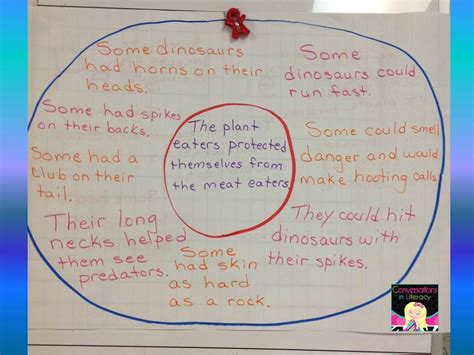 Some dinosaurs
had horns on their
heads.
Some
dinosaurs could
run fast.
Some had spikes
on their backs.
The plant
eaters protected
themselves from
the meat eaters.
Some could smell
danger and would
make hooting calls.
Some had a
club on their
tail.
Their long
necks helped
them see
predators.
Some
had skin
as hard
as a rock.
They could hit
dinosaurs with
their spikes.
Conversations
in Literacy